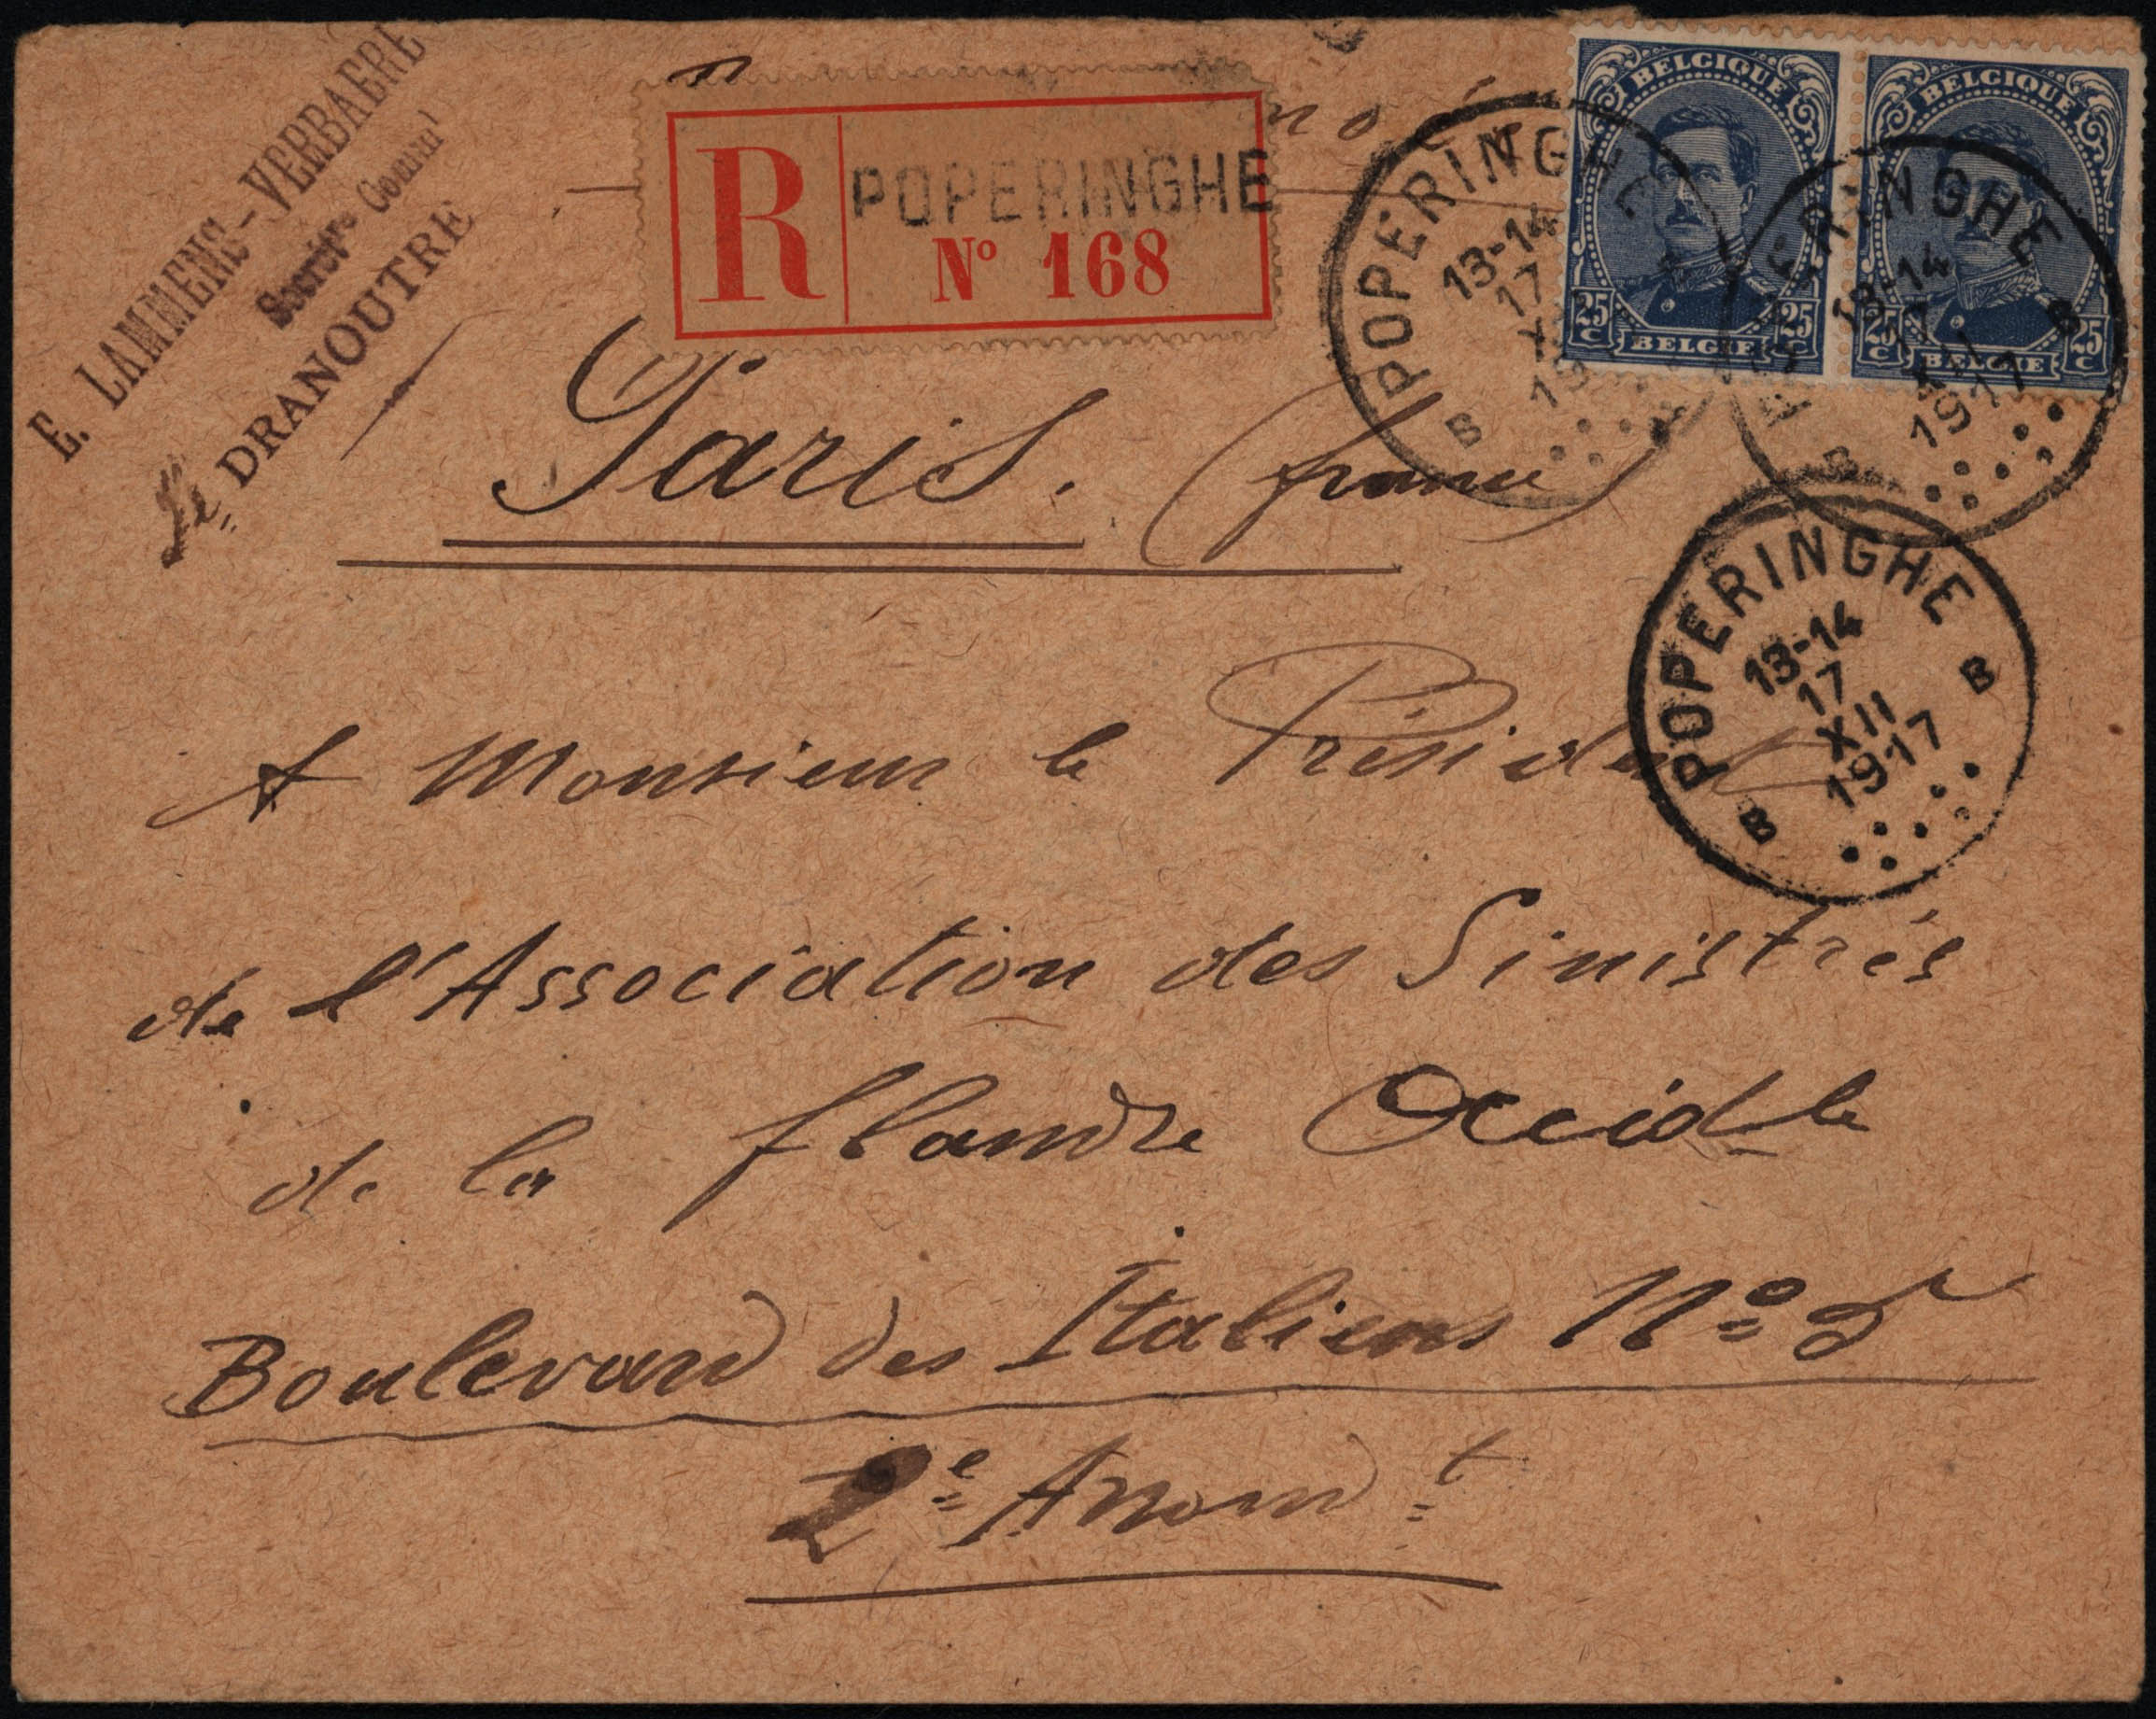 E. LAMMENS-VERBAERE
Secrére Comml
DRANOUTRE
R
POPERINGHE
No 168
BELGIQUE
25 C
BELGIE
25 C
BELGIQUE
25 C
BELGIE
25 C
POPERINGHE
13-14
17
B
RINGHE
13-14
1917
B
B
Paris. (france)
POPERINGHE
13-14
17
XII
1917
B
B
A Monsieur le Président
de l'Association des Sinistrés
de la flandre Occidle
Boulevard des Italiens No 5
2e Arromdt